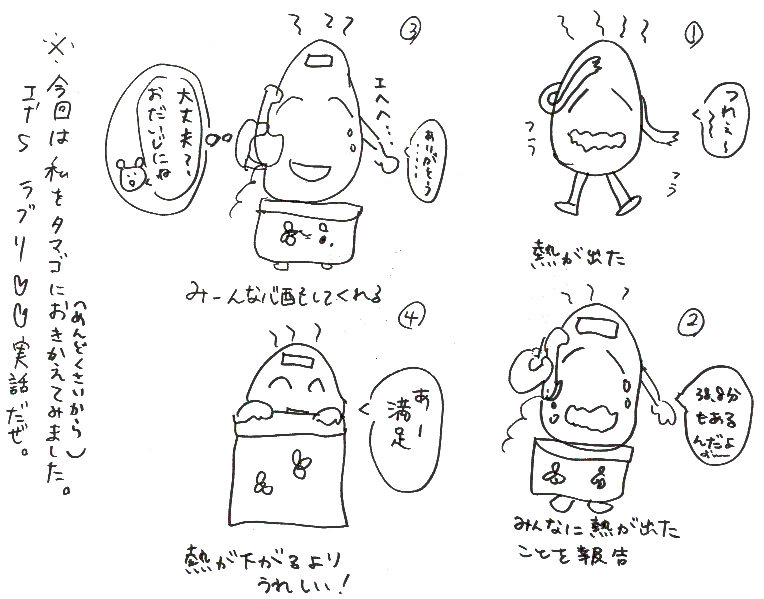 ①
つれぇ〜
フラ
フラ
熱が出た
②
38.8分
もある
んだよ
ぉ〜
みんなに熱が出た
ことを報告
③
エヘヘ…
ありがとう……
大丈夫〜
おだいじにね
みーんな心配をしてくれる
④
あー
満足
熱が下がるより
うれしい！
※今回は私をタマゴにおきかえてみました。
（めんどくさいから）
ラブリ♡♡実話だぜ。